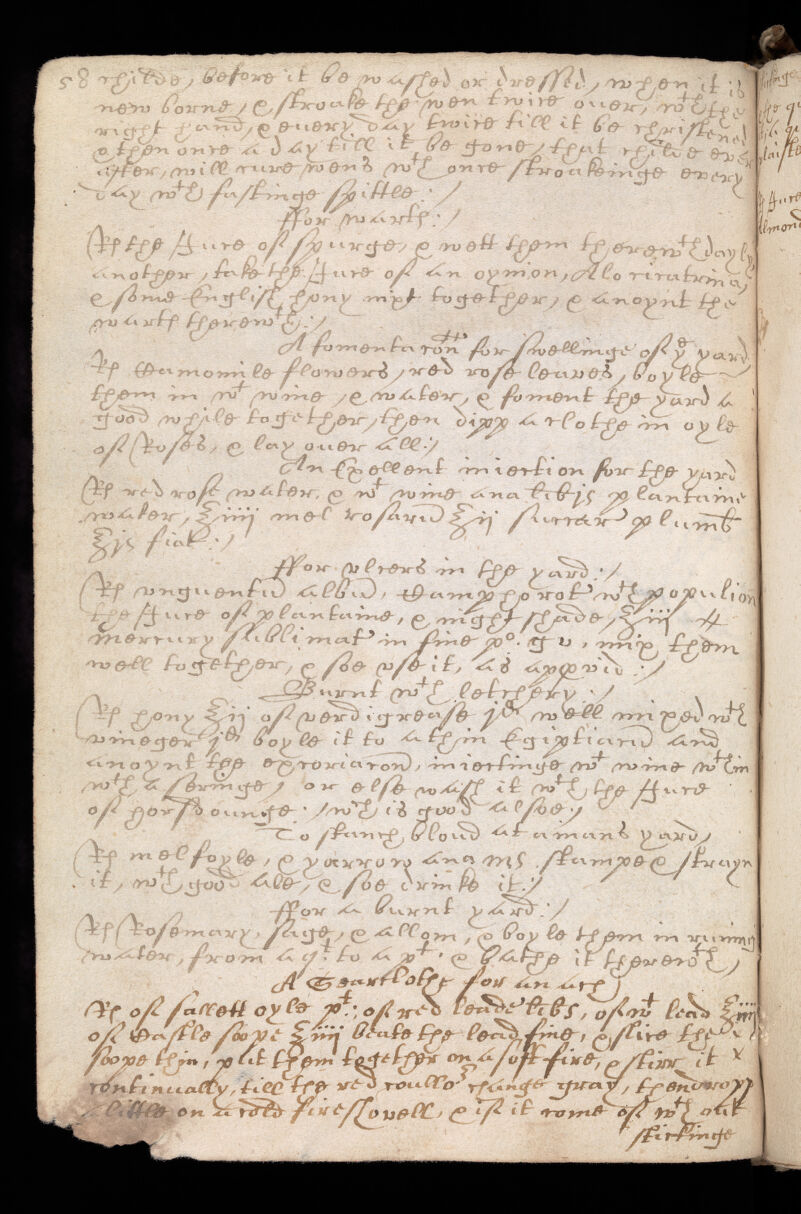 58 childe, before it be washed or dressed, when it is
new borne, & stroake the wen twice ouer, wth the
right hand, & euery day twice till it be christened
& then once a day till it be gone, that childe ever
after, will cure wens wth once stroakeinge every
day wth fastinge spittle:/
ffor warts:/
Rx the Juce of spurge, & wett them therewth dayly
another, take the Juce of an oynion, Alo cicatrina,
& some English hony mixt together, & anoynt the
warts therewth:/
A fomentacon for swellinge of ye yard
Rx Camomile flowers, red rose leaves, boyle
them in wt wine, & water, & foment the yard a
good while together, then dipp a clothe in oyle
of Roses, & lay ouer all:/
An Exellent iniection for the yard
Rx red rose water, & wt wine ana lib js plantaine
water, ℥iiij mel rosarũ ℥ij succar plumb
℥js fiat:/
ffor vlcers in the yard:/
Rx vnguentũ albũ, Camphorot wth populion
the Juce of plantaine, & night shade, ℥iij
mercury sublimat in fine po. g v, mix them
well together, & soe vse it, as appvid:/
Burnt wth letchery:/
Rx hony ℥ij of verdigrease j well mixed wth
vineger j boyle it to a thin Egiptiacũ and
anoynt the excoriacon, iniectinge wt wine wthin
wth a seringe, or else wash it wth the Juce
of horsdounge:/ wch is good alsoe:/
To stanch bloud at a mans yard,
Rx melfoyle, & yarrow ana ms stampe & strayn
it, wth good ale, & soe drinke it:/
ffor a burnt yard:/
Rx Rosemary, sage, & allom, & boyle them in runing
water, from a qt to a pt. & bathe it therewth/
A Searclothe for an ach
Rx of sallett oyle pt, of red leade libs, of wt lead ℥iiij
of Castle sope ℥iiij beate the lead fine, & slice the
sope thin, put them together on a soft fire, & stirr it
continually, till the red coullor change gray, then dropp
a little on a cold fire shovell, & if it come of wth out
stickinge